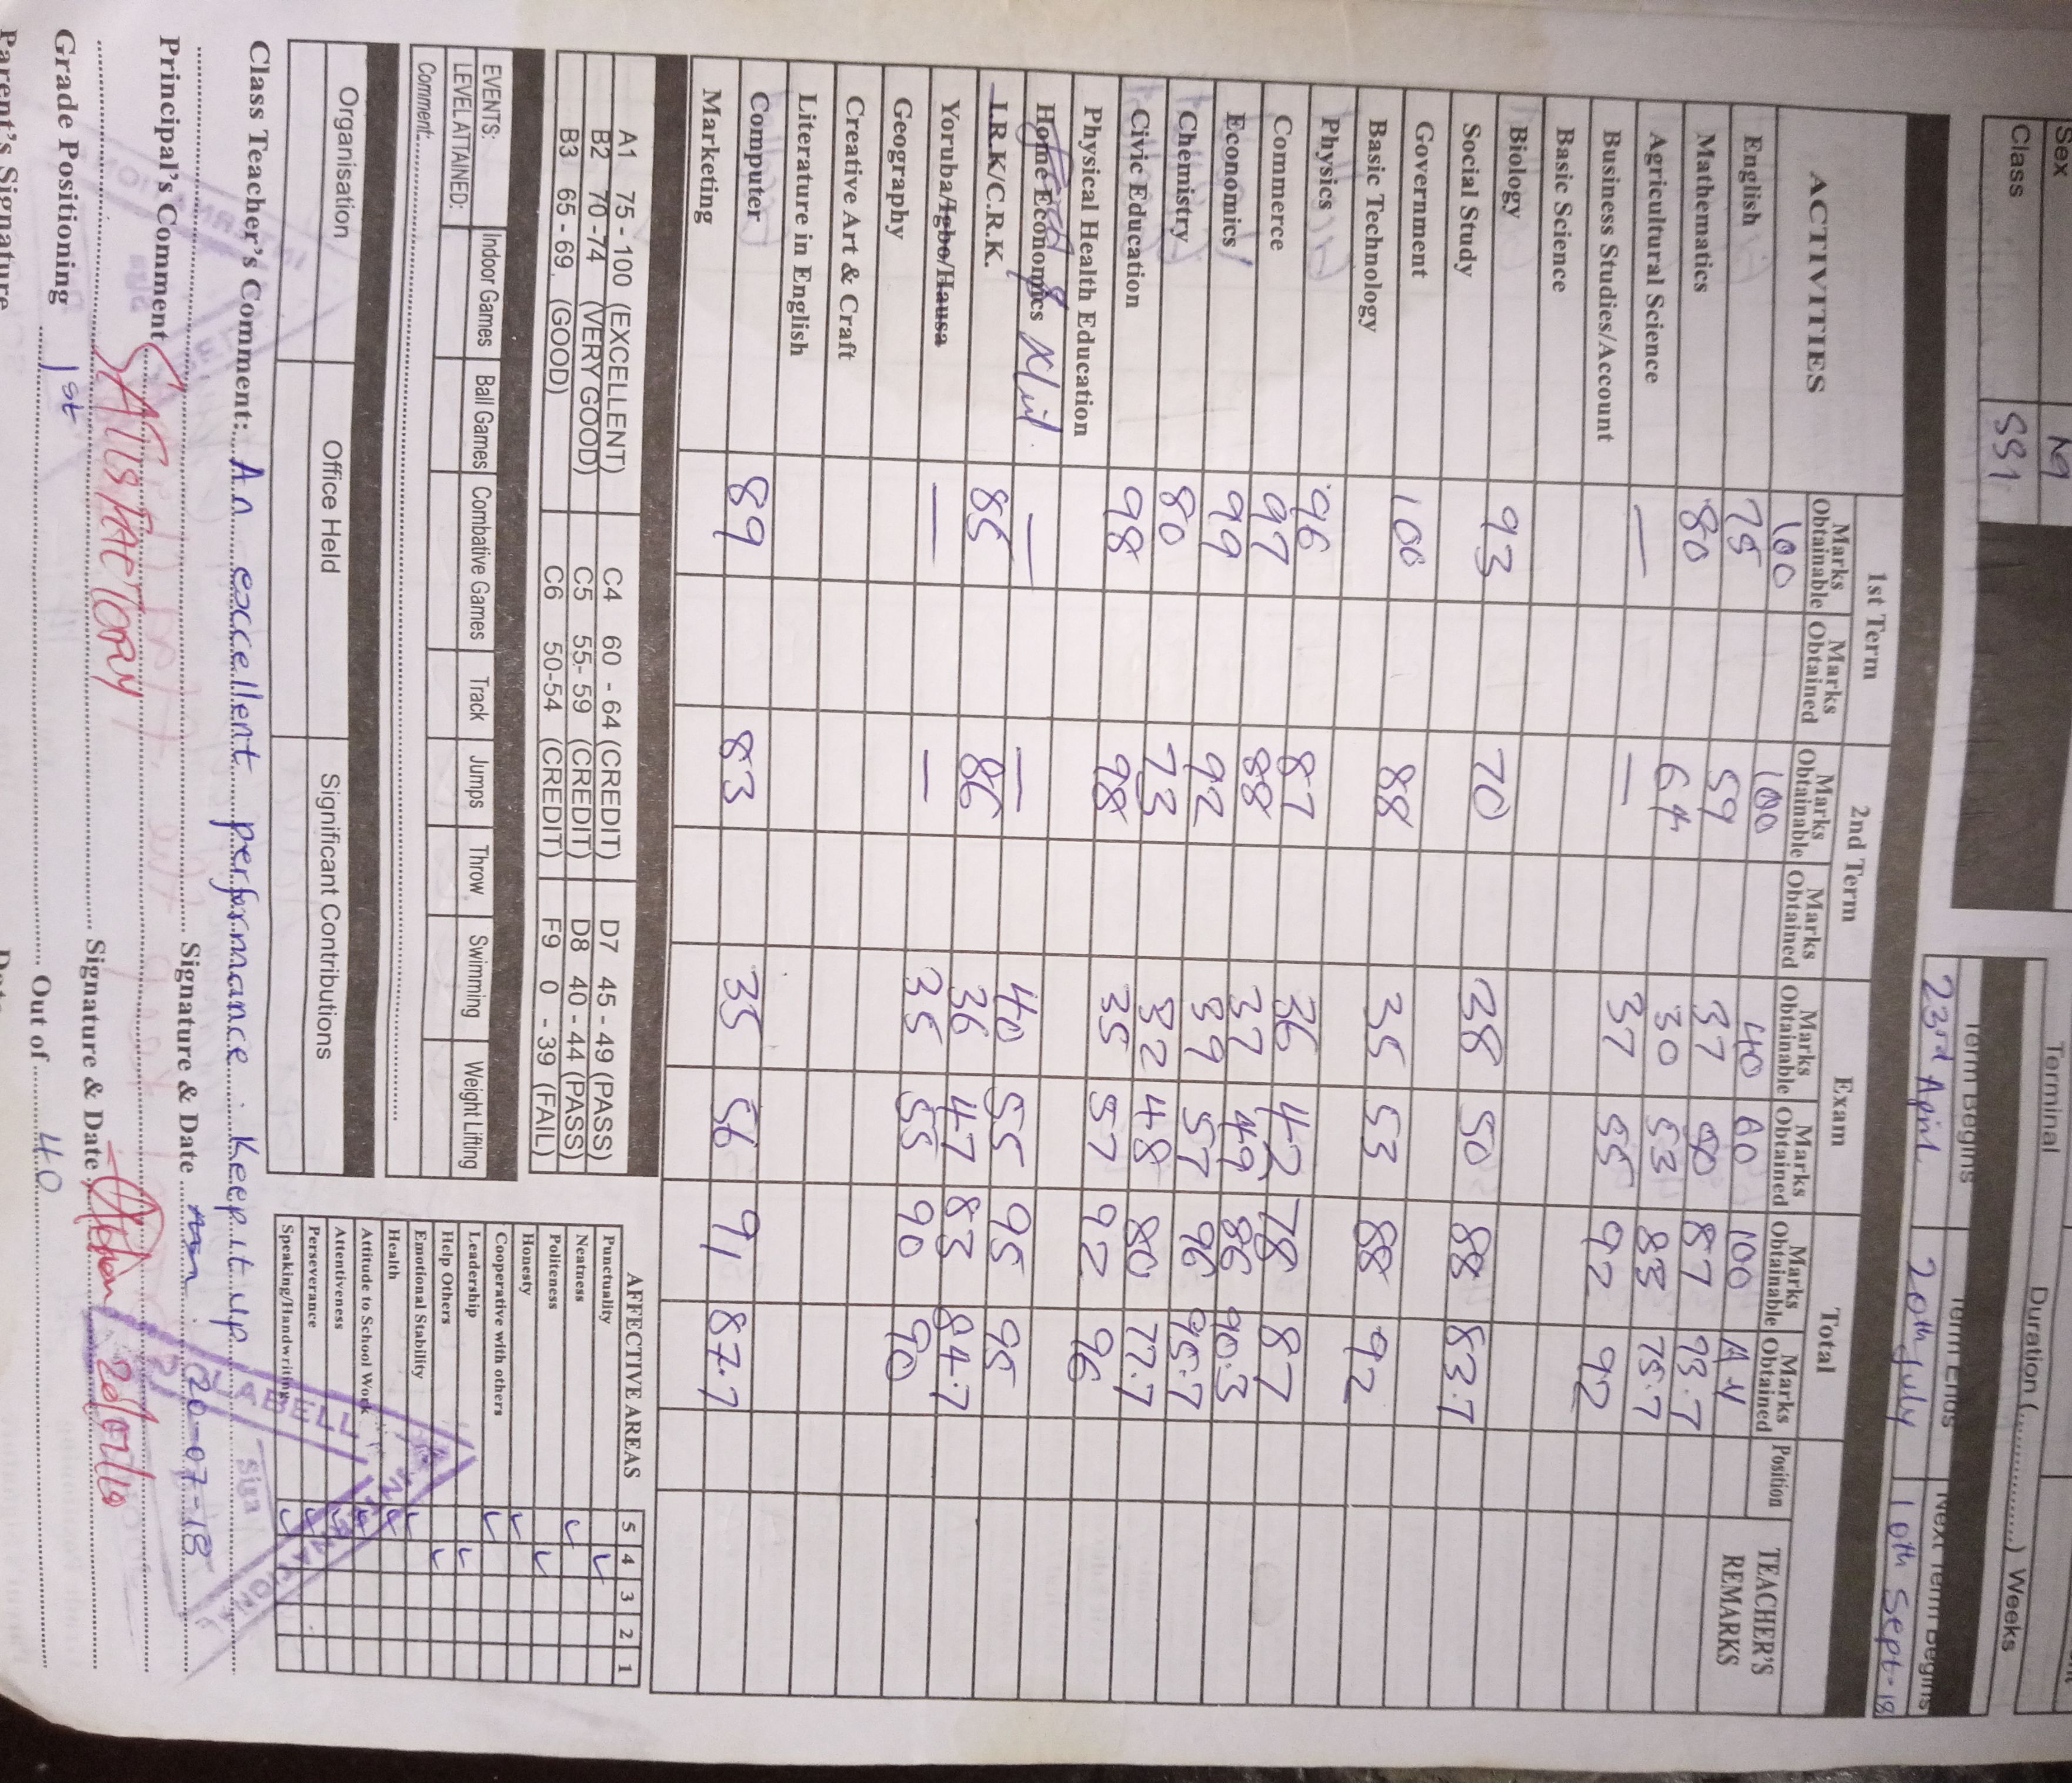 Sex M
Class SS1
Terminal Duration (............) Weeks
Term Begins Term Ends Next Term Begins
23rd April 20th July 10th Sept-18
ACTIVITIES 1st Term 2nd Term Exam Total Position TEACHER'S REMARKS
Marks Obtainable Marks Obtained Marks Obtainable Marks Obtained Marks Obtainable Marks Obtained Marks Obtainable Marks Obtained
100 100 40 60 100
English 75 59 37 87
Mathematics 80 64 30 53 83 75.7
Agricultural Science — — 37 55 92 92
Business Studies/Account
Basic Science
Biology 93 70 38 50 88 83.7
Social Study
Government 100 88 35 53 88 92
Basic Technology
Physics 96 87 36 42 78 87
Commerce 97 88 37 49 86 90.3
Economics 99 92 39 57 96 95.7
Chemistry 80 73 32 48 80 77.7
Civic Education 98 98 35 57 92 96
Physical Health Education
Home Economics — — 40 55 95 95
I.R.K/C.R.K. 85 86 36 47 83 84.7
Yoruba/Igbo/Hausa — — 35 55 90 90
Geography
Creative Art & Craft
Literature in English
Computer 89 83 35 56 91 87.7
Marketing
A1 75 - 100 (EXCELLENT) C4 60 - 64 (CREDIT) D7 45 - 49 (PASS)
B2 70 -74 (VERY GOOD) C5 55- 59 (CREDIT) D8 40 - 44 (PASS)
B3 65 - 69 (GOOD) C6 50-54 (CREDIT) F9 0 - 39 (FAIL)
EVENTS: Indoor Games Ball Games Combative Games Track Jumps Throw Swimming Weight Lifting
LEVEL ATTAINED:
Comment:
Organisation Office Held Significant Contributions
AFFECTIVE AREAS 5 4 3 2 1
Punctuality
Neatness
Politeness
Honesty
Cooperative with others
Leadership
Help Others
Emotional Stability
Health
Attitude to School Work
Attentiveness
Perseverance
Speaking/Handwriting
Class Teacher's Comment: An excellent performance. Keep it up
Signature & Date 20-07-18
Principal's Comment SATISFACTORY
Signature & Date
Grade Positioning 1st Out of 40
Parent's Signature